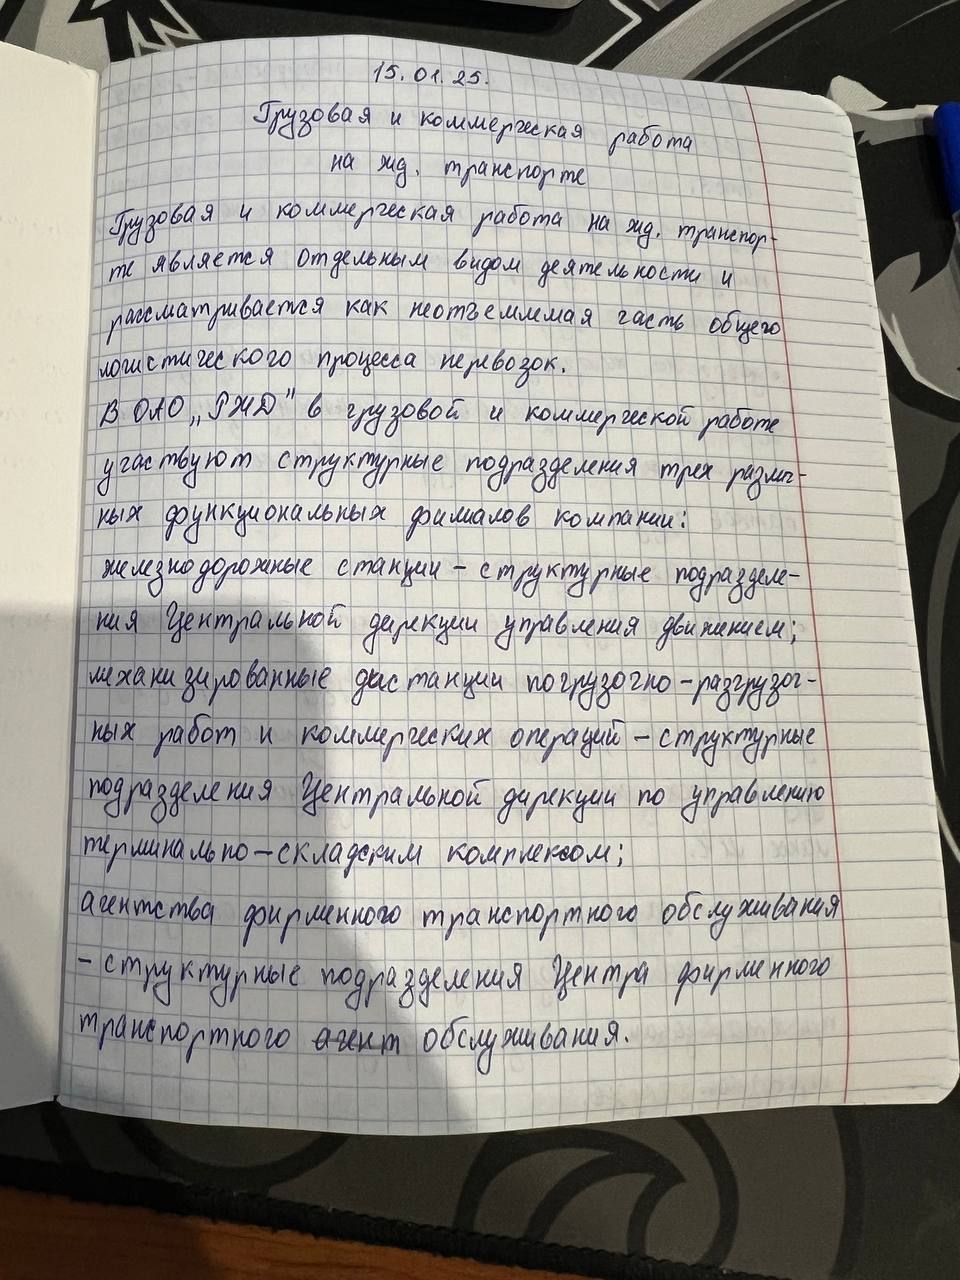 15.01.25.
Грузовая и коммерческая работа
на жд. транспорте
Грузовая и коммерческая работа на жд. транспор-
те является отдельным видом деятельности и
рассматривается как неотъемлемая часть общего
логистического процесса перевозок.
В ОАО „РЖД" в грузовой и коммерческой работе
участвуют структурные подразделения трех различ-
ных функциональных филиалов компании:
железнодорожные станции – структурные подразделе-
ния Центральной дирекции управления движением;
механизированные дистанции погрузочно-разгрузоч-
ных работ и коммерческих операций – структурные
подразделения Центральной дирекции по управлению
терминально-складским комплексом;
агентства фирменного транспортного обслуживания
– структурные подразделения Центра фирменного
транспортного агент обслуживания.